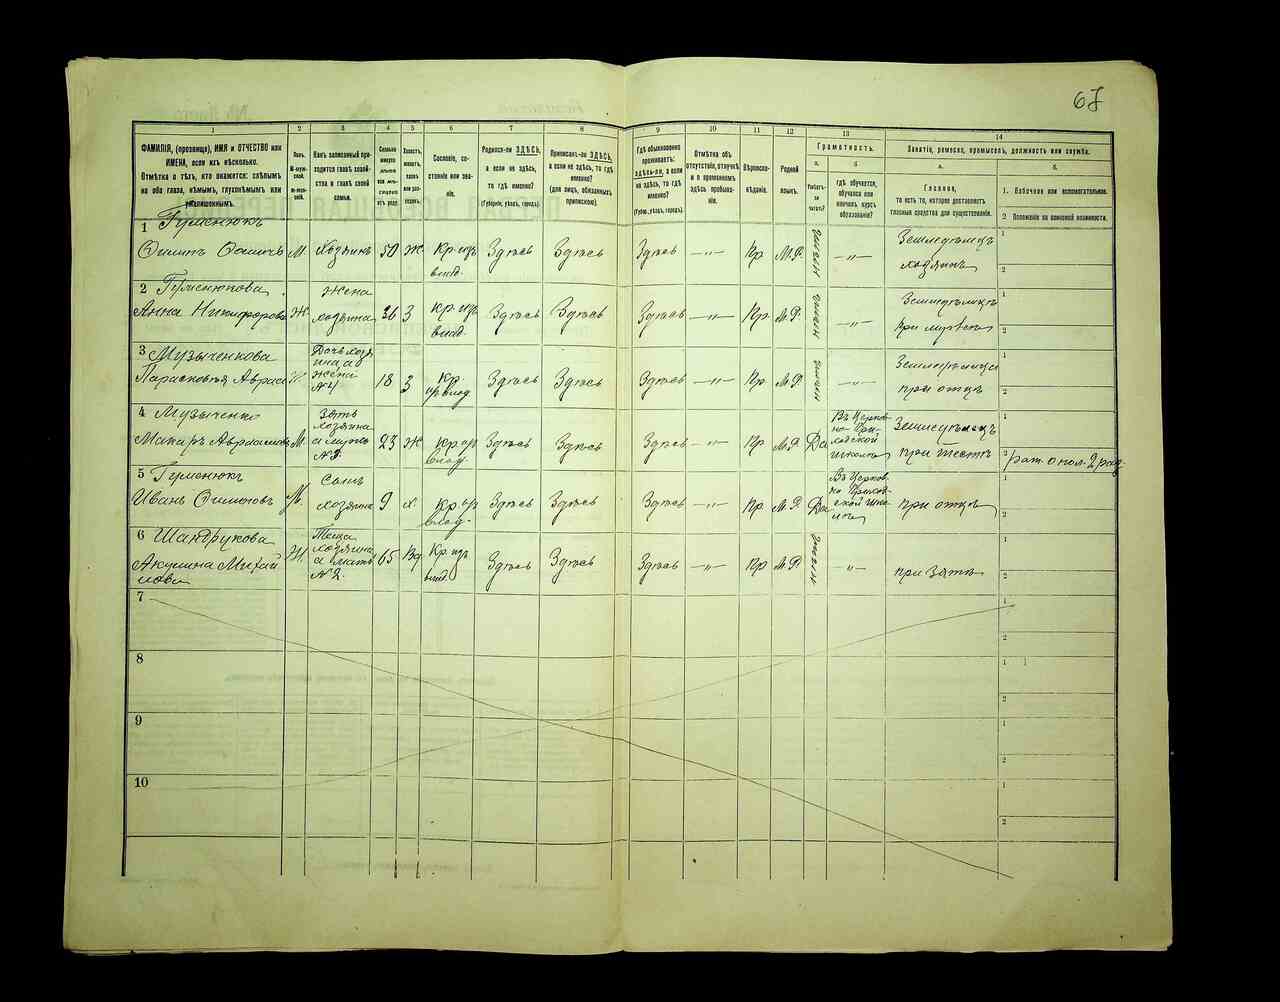 67
1 2 3 4 5 6 7 8 9 10 11 12 13 14
ФАМИЛІЯ, (прозвище), ИМЯ и ОТЧЕСТВО или
ИМЕНА, если ихъ нѣсколько.
Отмѣтка о тѣхъ, кто окажется: слѣпымъ
на оба глаза, нѣмымъ, глухонѣмымъ или
умалишеннымъ.
Полъ.
М-мужской.
Ж-женскій.
Какъ записанный приходится главѣ хозяйства и главѣ своей семьи.
Сколько минуло лѣтъ или мѣсяцевъ отъ роду.
Холостъ, женатъ, вдовъ или разведенъ.
Сословіе, состояніе или званіе.
Родился-ли ЗДѢСЬ,
а если не здѣсь,
то гдѣ именно?
(Губернія, уѣздъ, городъ).
Приписанъ-ли ЗДѢСЬ,
а если не здѣсь, то гдѣ
именно?
(для лицъ, обязанныхъ
припискою).
Гдѣ обыкновенно
проживаетъ:
здѣсь-ли, а если
не здѣсь, то гдѣ
именно?
(Губ., уѣздъ, городъ).
Отмѣтка объ
отсутствіи, отлучкѣ
и о временномъ
здѣсь пребываніи.
Вѣроисповѣданіе.
Родной
языкъ.
Грамотность.
а.
Умѣетъ-ли читать?
б.
гдѣ обучается,
обучался или
кончилъ курсъ
образованія?
Занятіе, ремесло, промыселъ, должность или служба.
а.
Главное,
то есть то, которое доставляетъ
главныя средства для существованія.
б.
1. Побочное или вспомогательное.
2 Положеніе по воинской повинности.
1 Гуменюкъ
М. Хозяинъ 50 Ж Кр. изъ влад. Здѣсь Здѣсь Здѣсь —"— Пр М.Р. —"— Земледѣлецъ хозяинъ
2 Гуменюкова
Анна Никифорова Ж. Жена хозяина 36 З Кр. изъ влад. Здѣсь Здѣсь Здѣсь —"— Пр. М.Р. —"— при мужѣ
3 Музыченкова
Парасковья Ж. Дочь хозяина а жена №4 18 З Кр. влад. Здѣсь Здѣсь Здѣсь —"— Пр М.Р. —"— при отцѣ
4 Музыченко
Макаръ М. Зять хозяина а мужъ 23 Ж Кр. влад. Здѣсь Здѣсь Здѣсь —"— Пр М.Р. Да Въ Церковно Приходской школѣ Земледѣлецъ при тестѣ рат. опол. 2 раз.
5 Гуменюкъ
Иванъ М. Сынъ хозяина 9 х. Кр. влад. Здѣсь Здѣсь Здѣсь —"— Пр М.Р. Да Въ Церковно Приходской школѣ при отцѣ
6 Шандрукова
Акулина Михайлова Ж. Теща хозяина а мать №2. 65 Вд Кр. изъ влад. Здѣсь Здѣсь Здѣсь —"— Пр М.Р. —"— при зятѣ
7
8
9
10